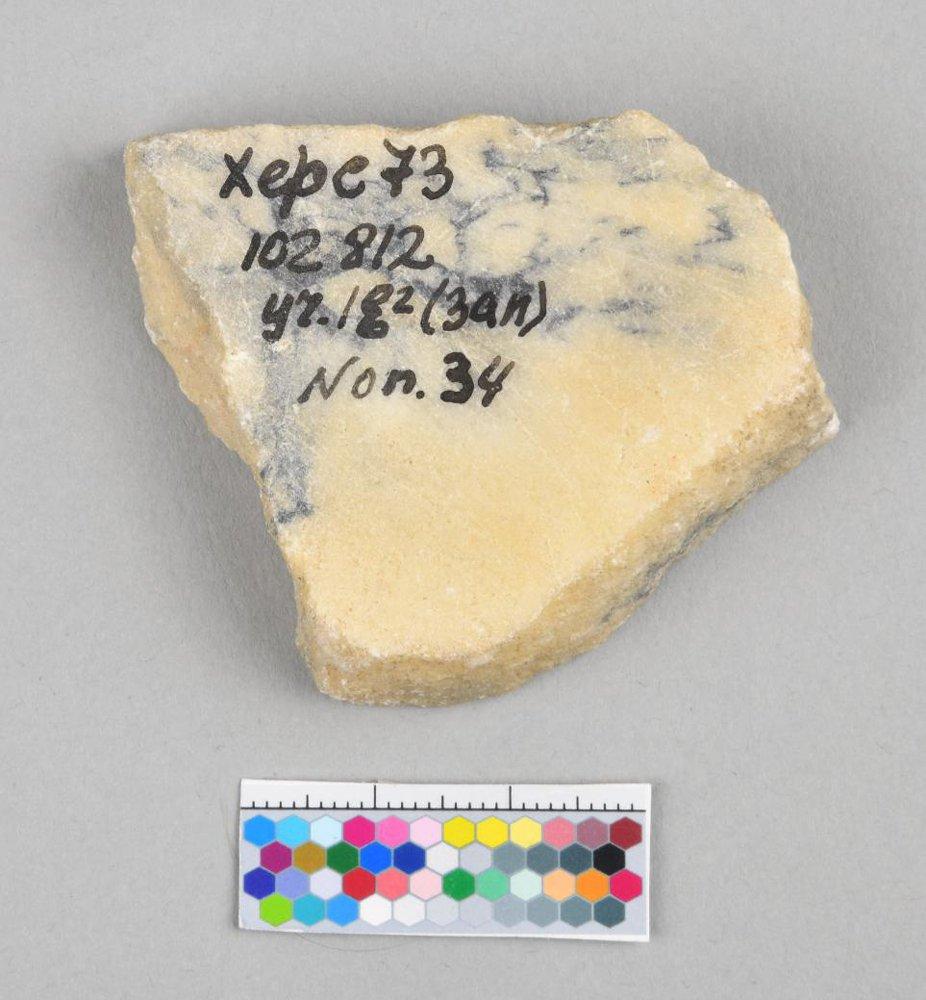 Херс 73
102 812
уг. 1g² (зап)
Пом. 34